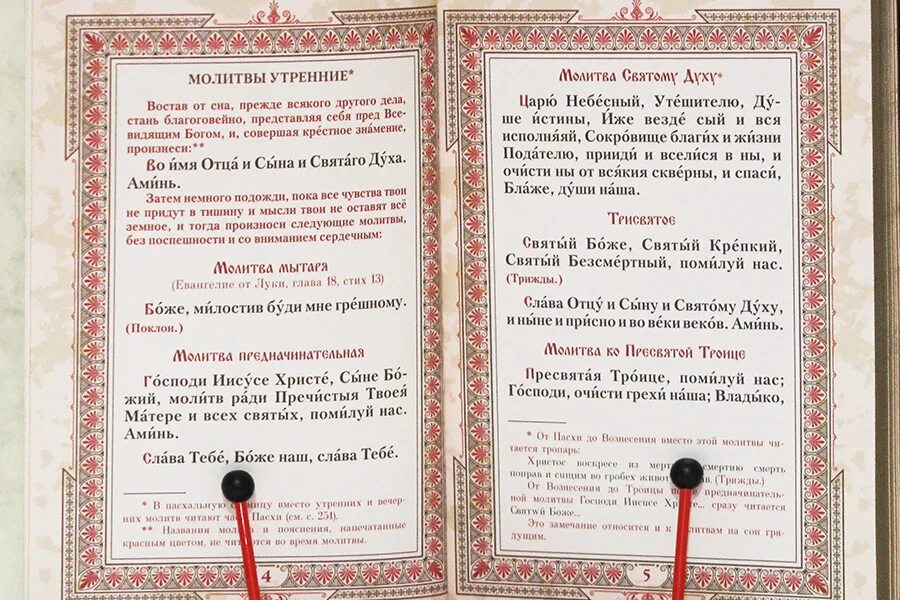 МОЛИТВЫ УТРЕННИЕ*
Востав от сна, прежде всякого другого дела,
стань благоговейно, представляя себя пред Все-
видящим Богом, и, совершая кре́стное зна́мение,
произнеси:**
Во и́мя Отца́ и Сы́на и Свята́го Ду́ха.
Ами́нь.
Затем немного подожди, пока все чувства твои
не придут в тишину и мысли твои не оставят всё
земное, и тогда произноси следующие молитвы,
без поспешности и со вниманием сердечным:
Молитва мытаря
(Евангелие от Луки, глава 18, стих 13)
Бо́же, ми́лостив бу́ди мне гре́шному.
(Поклон.)
Молитва предначинательная
Го́споди Иису́се Христе́, Сы́не Бо́-
жий, моли́тв ра́ди Пречи́стыя Твоея́
Ма́тере и всех святы́х, поми́луй нас.
Ами́нь.
Сла́ва Тебе́, Бо́же наш, сла́ва Тебе́.
* В пасхальную мицу вместо утренних и вечер-
них молитв читают час Пасхи (см. с. 251).
** Названия мол и пояснения, напечатанные
красным цветом, не чит ются во время молитвы.
4
Молитва Святому Духу*
Царю́ Небе́сный, Уте́шителю, Ду́-
ше и́стины, И́же везде́ сый и вся
исполня́яй, Сокро́вище благи́х и жи́зни
Пода́телю, прииди́ и всели́ся в ны, и
очи́сти ны от вся́кия скве́рны, и спаси́,
Бла́же, ду́ши на́ша.
Трисвятое
Святы́й Бо́же, Святы́й Кре́пкий,
Святы́й Безсме́ртный, поми́луй нас.
(Трижды.)
Сла́ва Отцу́ и Сы́ну и Свято́му Ду́ху,
и ны́не и при́сно и во ве́ки веко́в. Ами́нь.
Молитва ко Пресвятой Троице
Пресвята́я Тро́ице, поми́луй нас;
Го́споди, очи́сти грехи́ на́ша; Влады́ко,
* От Пасхи до Вознесения вместо этой молитвы чи-
тается тропарь:
Христос воскресе из мерт смертию смерть
поправ и сущим во гробех живот в. (Трижды.)
От Вознесения до Троицы после предначинатель-
ной молитвы Господи Иисусе Христе... сразу читается
Святый Боже...
Это замечание относится и к молитвам на сон гря-
дущим.
5